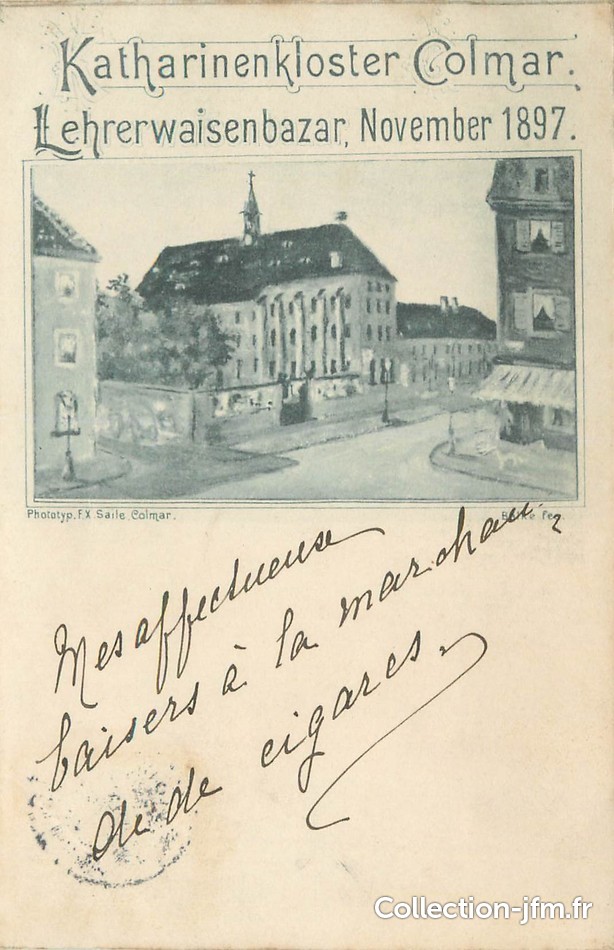 Katharinenkloster Colmar.
Lehrerwaisenbazar, November 1897.
Phototyp. F.X. Saile, Colmar.
fec.
Mes affectueuse
baisers à la marchan
de de cigares.
Collection-jfm.fr